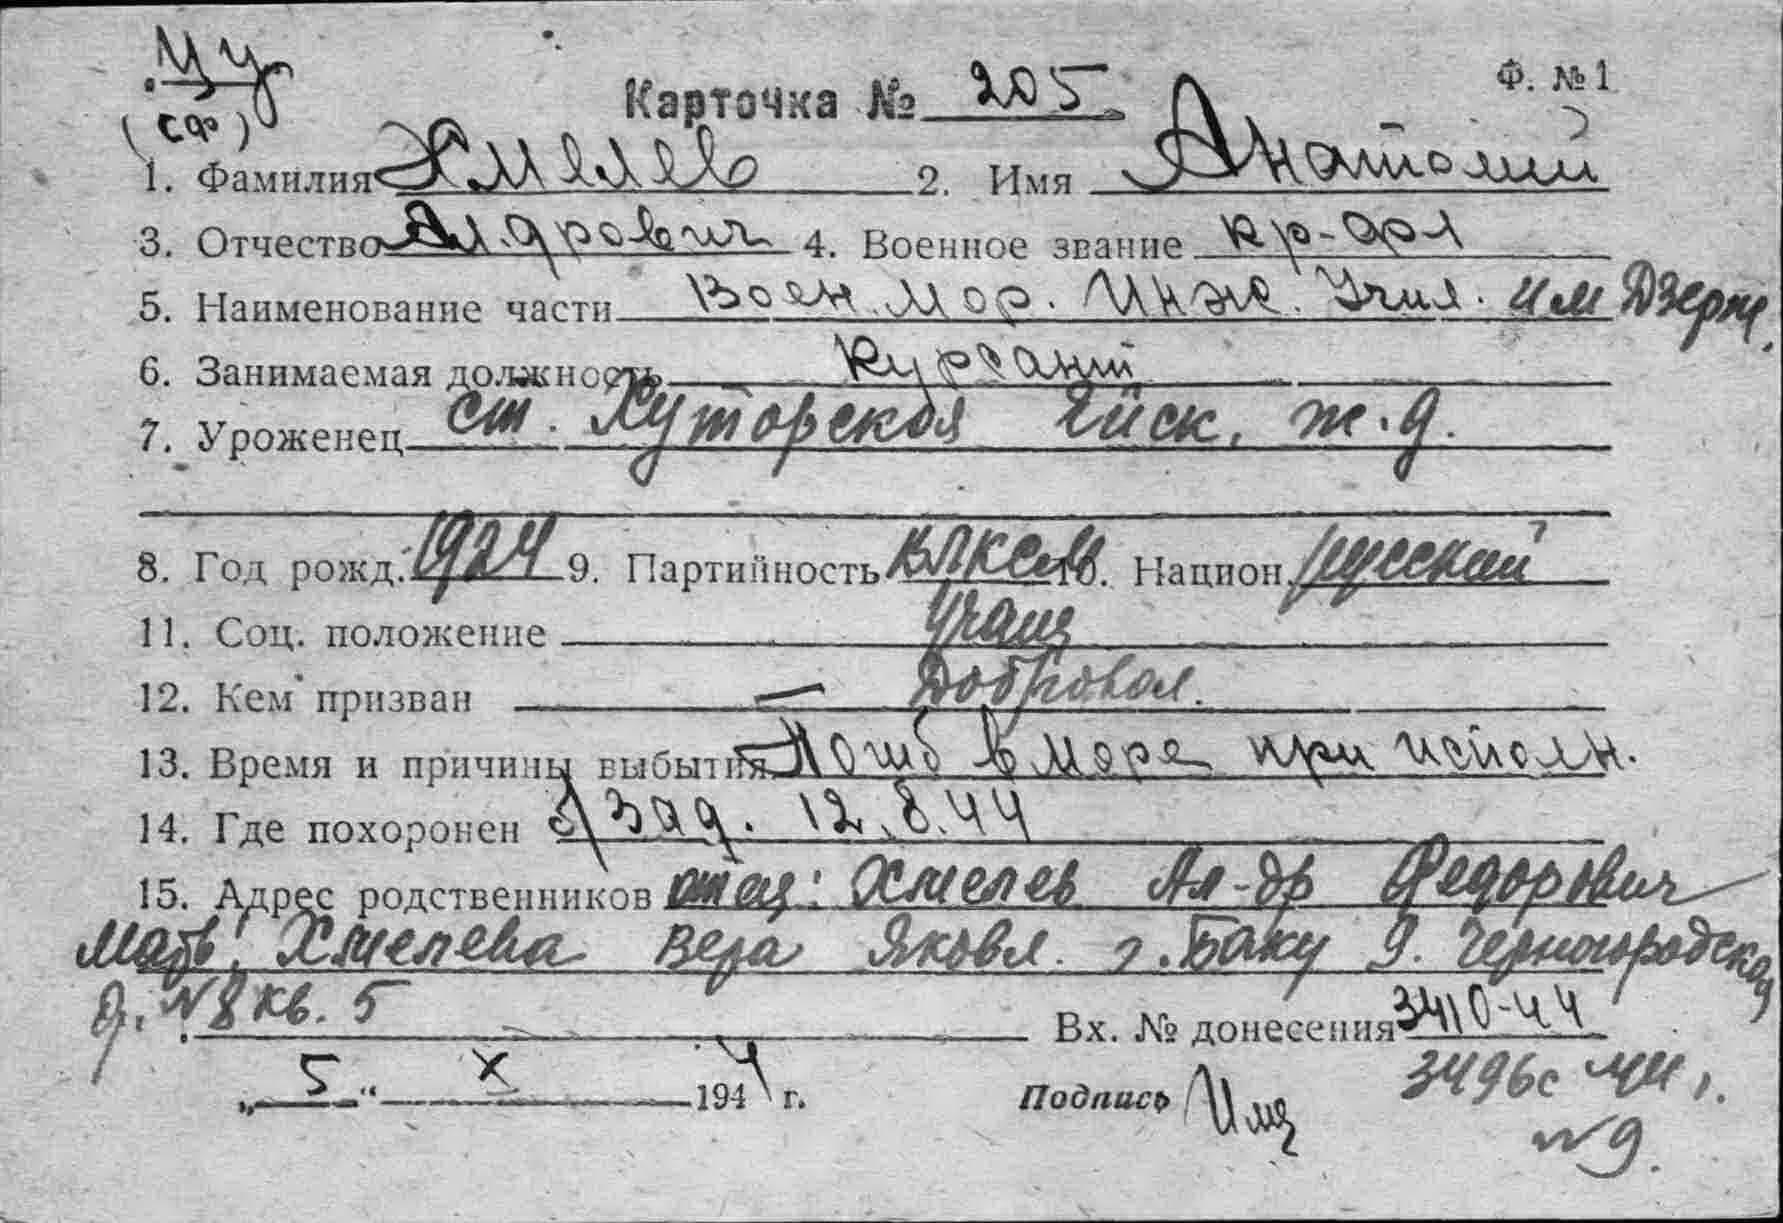 ЦУ
(СФ)
Ф. №1
Карточка № 205
1. Фамилия Хмелев 2. Имя Анатолий
3. Отчество Ал.дрович 4. Военное звание кр-фл
5. Наименование части Воен. Мор. Инж. Учил. им Дзерж.
6. Занимаемая должность Курсант
7. Уроженец ст. Хуторская Ейск. ж.д.
8. Год рожд. 1924 9. Партийность ВЛКСМ 10. Национ. русский
11. Соц. положение учащ
12. Кем призван — Добровол.
13. Время и причины выбытия Погиб в море при исполн.
14. Где похоронен б/зад. 12.8.44
15. Адрес родственников отец: Хмелев Ал-др Федорович
Мать: Хмелева Вера Яковл. г. Баку 9. Черногородская
д. №8 кв. 5
Вх. № донесения 3410-44
„5" X 1944 г. Подпись
3496с 44 г.
№9.